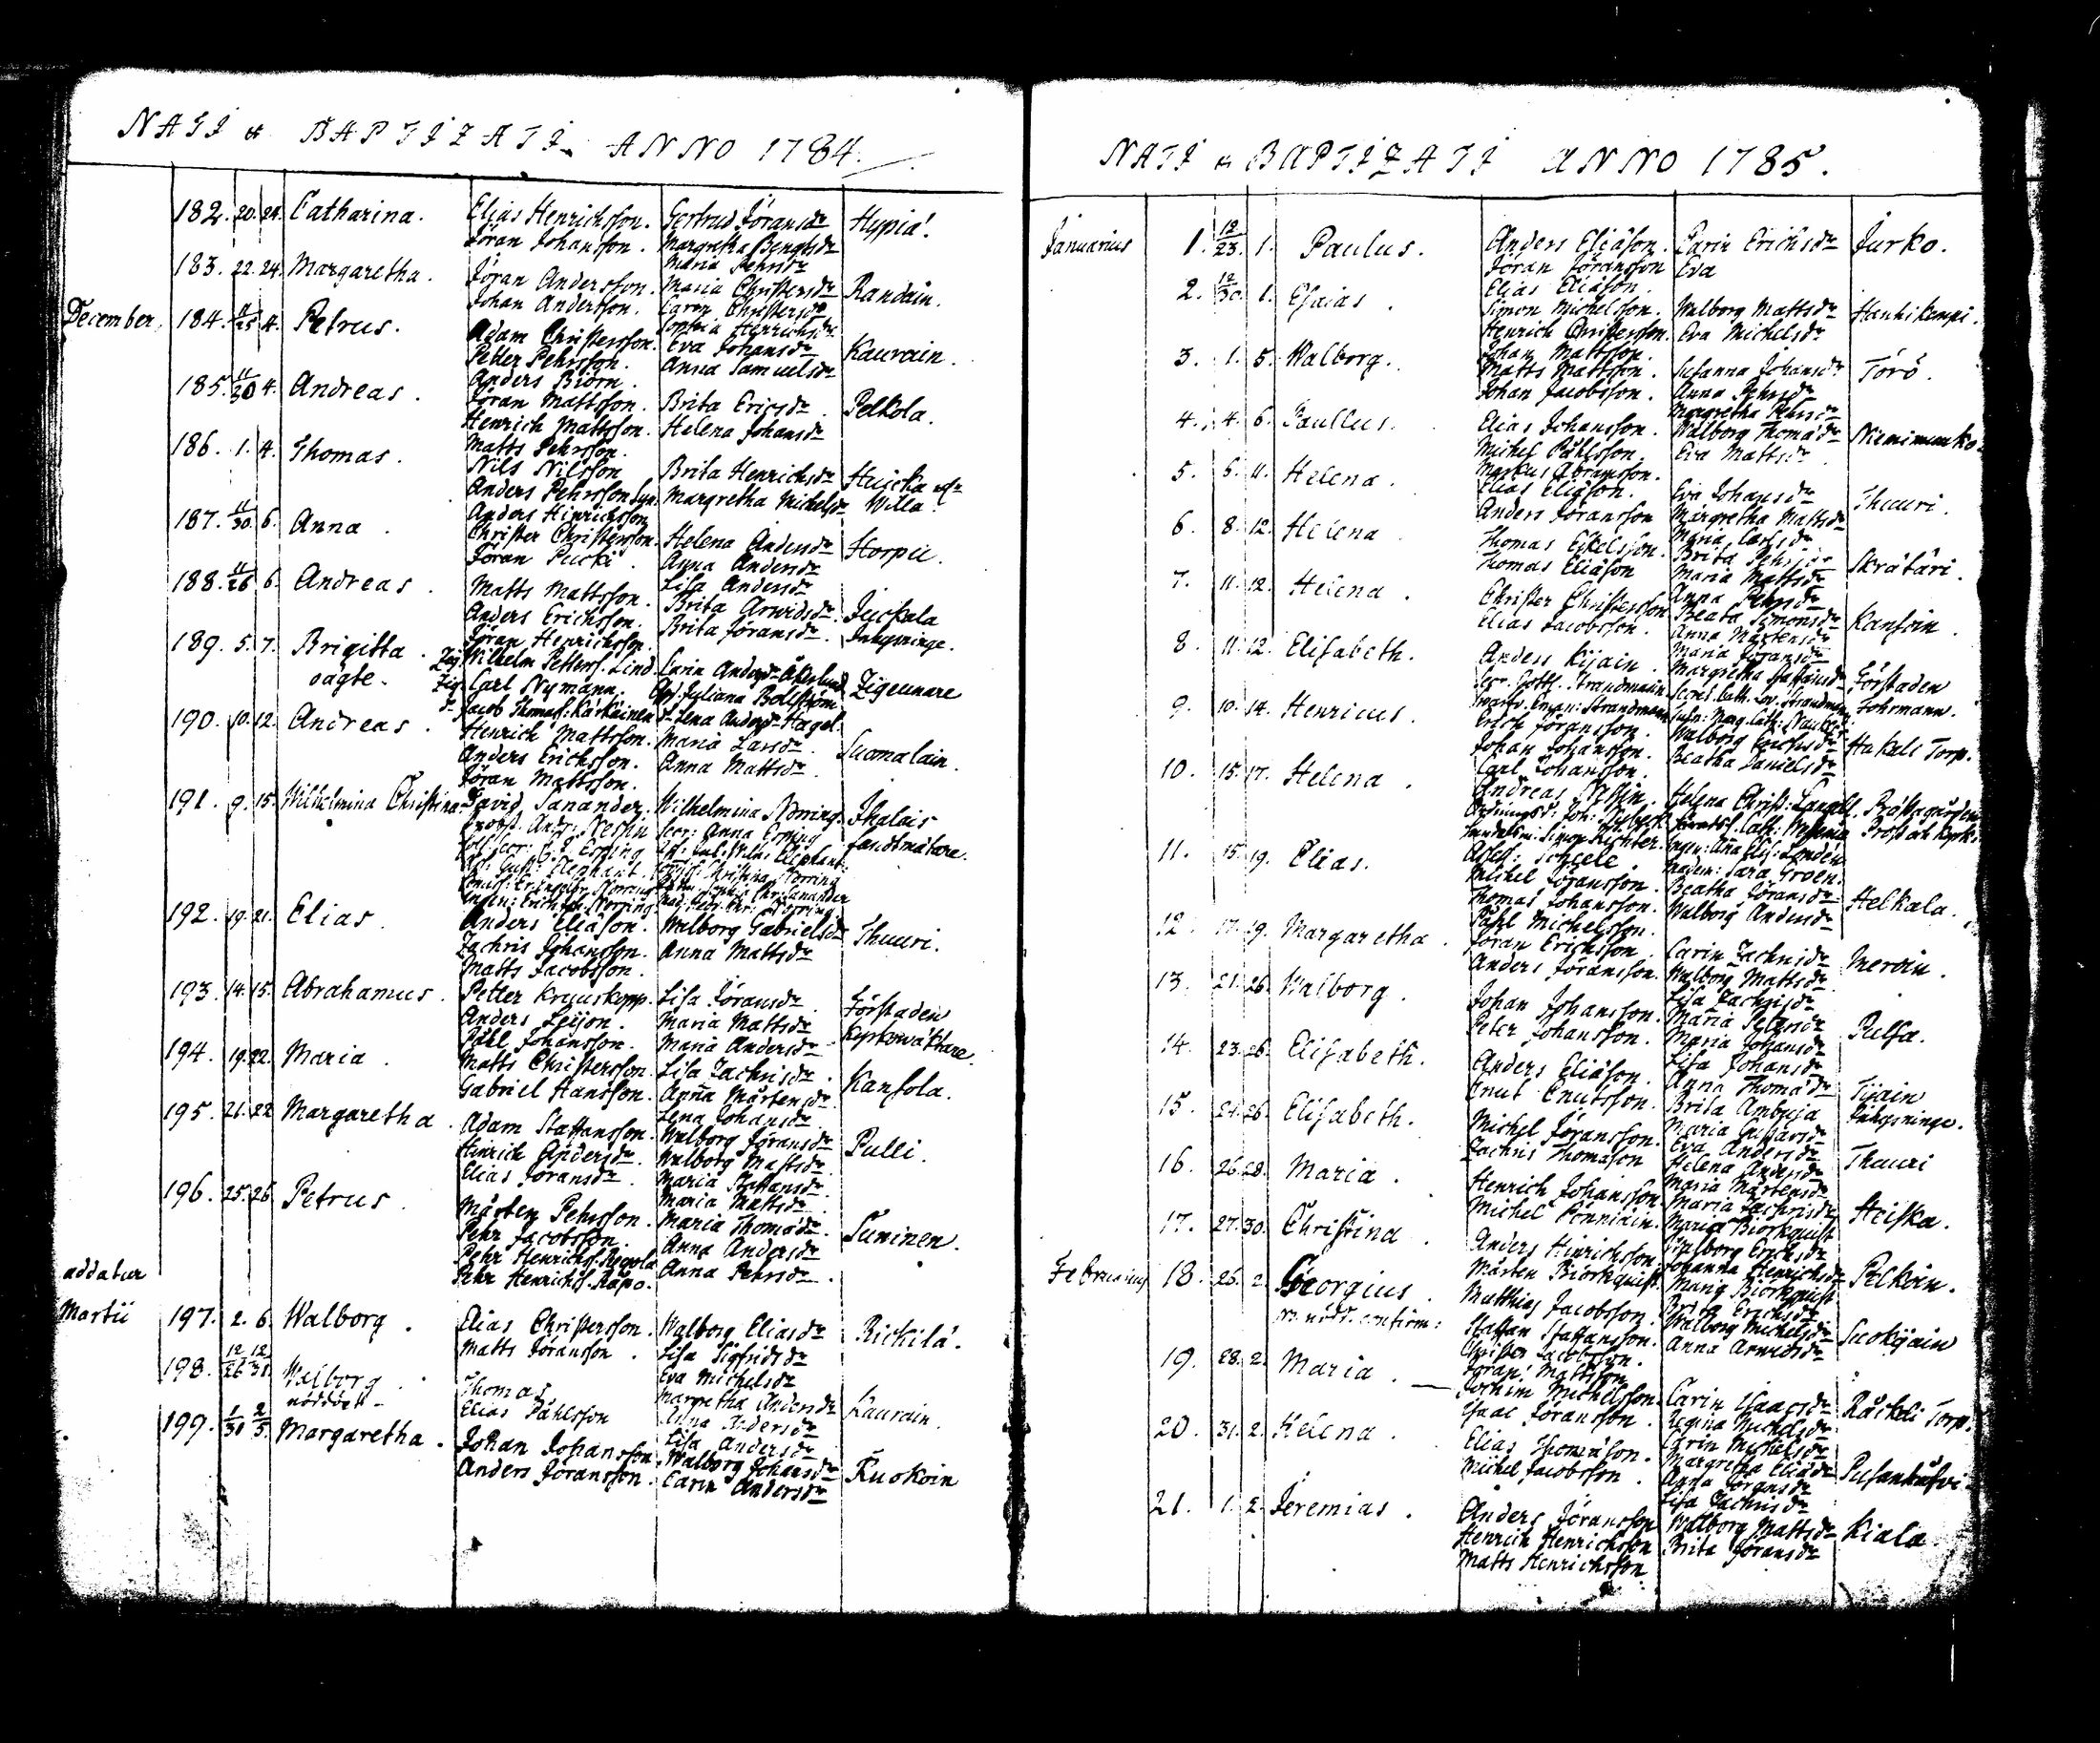 NATI & BAPTIZATI ANNO 1784.
182. 20. 24. Catharina. Elias Henrichsson. Gertrud Jöransdr Hypiä.
Jöran Johansson. Margretha Bengtsdr
Maria Pehrsdr
183. 22. 24. Margaretha. Jöran Andersson. Maria Christersdr Randain.
Johan Andersson. Carin Christersdr
Sophia Henrichsdr
December. 184. 11/25 4. Petrus. Adam Christersson. Eva Johansdr Kaurain.
Petter Pehrsson. Anna Samuelsdr
Anders Biörn.
185. 11/30 4. Andreas. Jöran Mattsson. Brita Ericsdr Pelkola.
Henrich Mattsson. Helena Johansdr
Matts Pehrsson.
186. 1. 4. Thomas. Nils Nilsson Brita Henrichsdr Huicka
Anders Pehrsson Margretha Michelsdr Willa
Anders Hinrichsson
187. 11/30. 6. Anna. Christer Christersson. Helena Andersdr Horpu.
Jöran Pucki. Anna Andersdr
Lisa Andersdr
188. 11/26 6. Andreas. Matts Mattsson. Brita Arvidsdr Juckala
Anders Erichsson. Brita Jöransdr. Inhysninge.
Jöran Henrichsson.
189. 5. 7. Brigitta. Zig. Wilhelm Petterss. Lind. Carin Andersdr Åkerlund Zigeunare
oägte. Zig. Carl Nymann. Juliana Bollström
Jacob Thomass. Kärkäinen Lena Andersdr Hagel.
190. 10. 12. Andreas. Henrich Mattsson. Maria Larsdr. Suomalain.
Anders Erichsson. Anna Mattsdr.
Jöran Mattsson.
191. 9. 15. Wilhelmina Christina. David Sanander. Wilhelmina Norring. Ihalais
Probst. Andr. Nesplin Anna Erping Landtmätare.
192. 19. 21. Elias. Anders Eliäson. Walborg Gabrielsdr Thuuri.
Zachris Johansson. Anna Mattsdr
Matts Jacobsson.
193. 14. 15. Abrahamus. Petter Kruuskopp. Lisa Jöransdr. Förstaden
Anders Leijon. Maria Mattsdr Kyrkowäktare.
Påhl Johansson. Maria Andersdr
194. 19. 22. Maria. Matts Christersson. Lisa Zachrisdr. Kansola.
Gabriel Hansson. Anna Mårtensdr
Lena Johansdr.
195. 21. 22 Margaretha. Adam Staffansson. Walborg Jöransdr Pulli.
Hinrich Andersdr. Walborg Mattsdr
Elias Joransdr. Maria Staffansdr.
Maria Mattsdr.
196. 25. 26. Petrus. Mårten Pehrsson. Maria Thomædr. Suninen.
Pehr Jacobsson. Anna Andersdr
Pehr Henrichs. Anna Pehrsdr.
Pehr Henrichs. Räpo.
addatur
Martii 197. 2. 6. Walborg. Elias Christersson. Walborg Eliasdr Richilä.
Matts Jöransson. Lisa Sigfridsdr
Eva Michelsdr
198. 12/26 12/31. Walborg. Thomas Margretha Andersdr Kaurain.
nöddöpt Elias Påhlsson Anna Andersdr
Lisa Andersdr
199. 1/30 2/5. Margaretha. Johan Johansson. Walborg Johansdr Kuokoin
Anders Joransson. Carin Andersdr
NATI & BAPTIZATI ANNO 1785.
Januarius 1. 12/23. 1. Paulus. Anders Eliäson. Carin Erichsdr Jurko.
Jöran Jöransson Eva
Elias Eliäson.
2. 12/30. 1. Esaias. Simon Michelsson. Walborg Mattsdr Hanhikempi.
Henrich Christersson. Eva Michelsdr
Johan Mattsson.
3. 1. 5. Walborg. Matts Mattsson. Susanna Johansdr Törö.
Johan Jacobsson. Anna Pehrsdr
Margretha Pehrsdr
4. 4. 6. Paullus. Elias Johansson. Walborg Thomädr Nieminmko.
Michel Påhlsson. Eva Mattsdr
Markus Abramsson.
5. 6. 11. Helena. Elias Eliäson. Eva Johansdr Thuuri.
Anders Jöransson Margretha Mattsdr
Maria Carlsdr
6. 8. 12. Helena. Thomas Eskelsson. Brita Pehrsdr Skrätäri.
Thomas Eliäson Maria Mattsdr
Anna Pehrsdr
7. 11. 12. Helena. Christer Christersson Beata Simonsdr Kansoin.
Elias Jacobsson. Anna Mårtensdr
Maria Jöransdr
8. 11. 12. Elisabeth. Anders Kijain. Margretha Staffansdr Förstaden
Gottl. Strandmann Fohrmann.
9. 10. 14. Henricus. Erich Jöransson. Walborg Erichsdr Hakali Torp.
Johan Johansson. Beatha Danielsdr
Carl Johansson.
10. 15. 17. Helena. Andreas Nesplin. Helena Christ: Langell. Prästagården
Prost och Kyrk.
Handelsm. Simon Richter.
Assess: Scheele. Madem: Sara Groen.
11. 15. 19. Elias. Michel Jöransson. Beatha Jöransdr Helkala.
Thomas Johansson. Walborg Andersdr
Påhl Michelsson.
12. 17. 19. Margaretha. Jöran Erichsson Carin Zachrisdr Meroin.
Anders Jöransson. Walborg Mattsdr
Lisa Zachrisdr
13. 21. 26. Walborg. Johan Johansson. Maria Petersdr Pulsa.
Peter Johansson. Maria Johansdr
Lisa Johansdr
14. 23. 26. Elisabeth. Anders Eliäson. Anna Thomädr Tijain
Cnut Cnutsson. Brita Ambuja Inhysninge.
Maria Gustavsdr
15. 24. 26. Elisabeth. Michel Jöransson. Eva Andersdr Thuuri
Zachris Thomäson Helena Andersdr
Maria Mårtensdr
16. 26. 28. Maria. Henrich Johansson Maria Zachrisdr Heiska.
Michel Penniäin. Maria Biörkquist
Walborg Erichsdr
17. 27. 30. Christina. Anders Hinrichsson. Johanna Henrichsdr Pelkoin.
Mårten Biörkquist. Maria Biörkquist
Brita Erichsdr
Februarius 18. 26. 2. Georgius. Matthias Jacobsson. Walborg Michelsdr Suokijain
nödd. confirm: Staffan Staffansson. Anna Arvidsdr
Christer Jacobsson.
Jöran Mattsson
19. 28. 2. Maria. Jochim Michelsson. Carin Isaacsdr Räikeli Torp.
Isaac Jöransson. Regina Michelsdr
Carin Michelsdr
20. 31. 2. Helena. Elias Thomäson. Margretha Eliädr
Michel Jacobsson. Anna Jöransdr
Lisa Zachrisdr
21. 1. 2. Jeremias. Anders Jöransson Walborg Mattsdr Kiala.
Henrich Henrichsson Brita Jöransdr
Matts Henrichsson